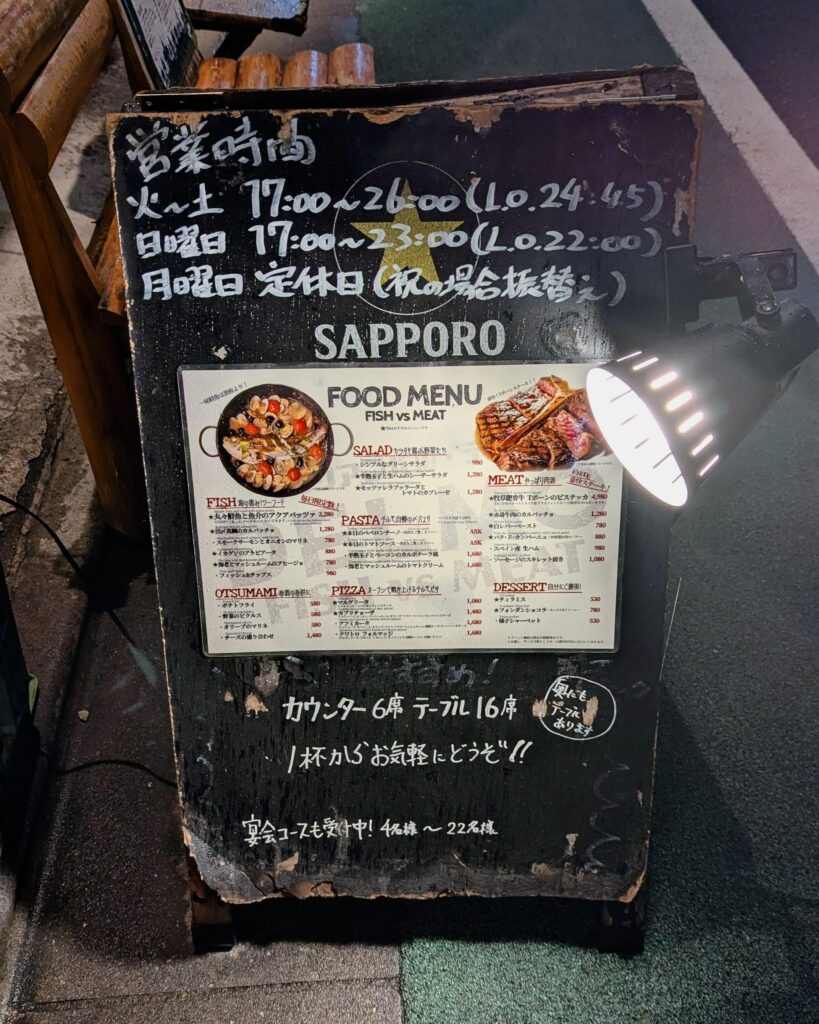 営業時間
火〜土 17:00〜26:00(L.O.24:45)
日曜日 17:00〜23:00(L.O.22:00)
月曜日 定休日(祝の場合振替え)
SAPPORO
FOOD MENU
FISH vs MEAT
SALAD
・シンプルなグリーンサラダ 980
★半熟玉子と生ハムのシーザーサラダ 1,480
★モッツァレラブッラータと
トマトのカプレーゼ 1,280
FISH
毎日数量限定!
★丸々鮮魚と魚介のアクアパッツァ 3,280
カルパッチョ 1,280
・スモークサーモンとオニオンのマリネ 780
★イカゲソのアラビアータ 880
★海老とマッシュルームのアヒージョ 780
・フィッシュ&チップス 980
OTSUMAMI
・ポテトフライ 580
・野菜のピクルス 580
・オリーブのマリネ 580
・チーズの盛り合わせ 1,480
PASTA
★本日のペペロンチーノ ASK
★本日のトマトソース ASK
・半熟玉子とベーコンのカルボナーラ風 1,680
・海老とマッシュルームのトマトクリーム 1,680
PIZZA オーブンで焼き上げる
★マルゲリータ 1,080
★カプリチョーザ 1,680
・アフミカータ 1,680
・クワトロ フォルマッジ 1,680
MEAT やっぱり肉酒
★牧草肥育牛 Tボーンのビステッカ 4,980
カルパッチョ 1,280
・白レバーペースト 780
★パテ・ド・カンパーニュ 880
・スペイン産 生ハム 980
・ソーセージのスキレット焼き 1,080
DESSERT 自分にご褒美!
★ティラミス 530
★フォンダンショコラ 780
・柚子シャーベット 530
おすすめ!
カウンター6席 テーブル16席
奥にも
テーブル
あります
1杯からお気軽にどうぞ!!
宴会コースも受付中! 4名様〜22名様